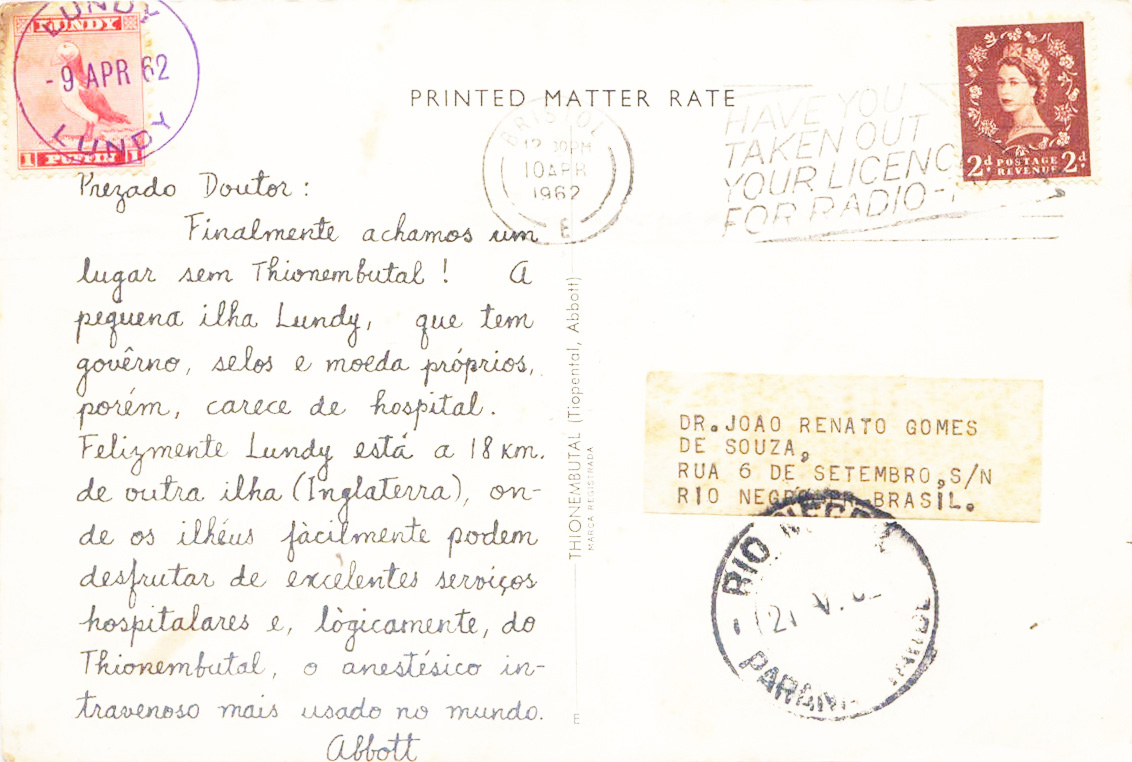 LUNDY
- 9 APR 62
LUNDY
LUNDY
1 PUFFIN 1
PRINTED MATTER RATE
BRISTOL
12 30PM
10 APR
1962
E
HAVE YOU
TAKEN OUT
YOUR LICENC
FOR RADIO-
2d POSTAGE REVENUE 2d
Prezado Doutor:
Finalmente achamos um
lugar sem Thionembutal! A
pequena ilha Lundy, que tem
govêrno, selos e moeda próprios,
porém, carece de hospital.
Felizmente Lundy está a 18 km.
de outra ilha (Inglaterra), on-
de os ilhéus fàcilmente podem
desfrutar de excelentes serviços
hospitalares e, lògicamente, do
Thionembutal, o anestésico in-
travenoso mais usado no mundo.
Abbott
THIONEMBUTAL (Tiopental, Abbott)
MARCA REGISTRADA
E
DR.JOAO RENATO GOMES
DE SOUZA,
RUA 6 DE SETEMBRO,S/N
RIO NEGRO BRASIL.
RIO NEGRO
PARANA